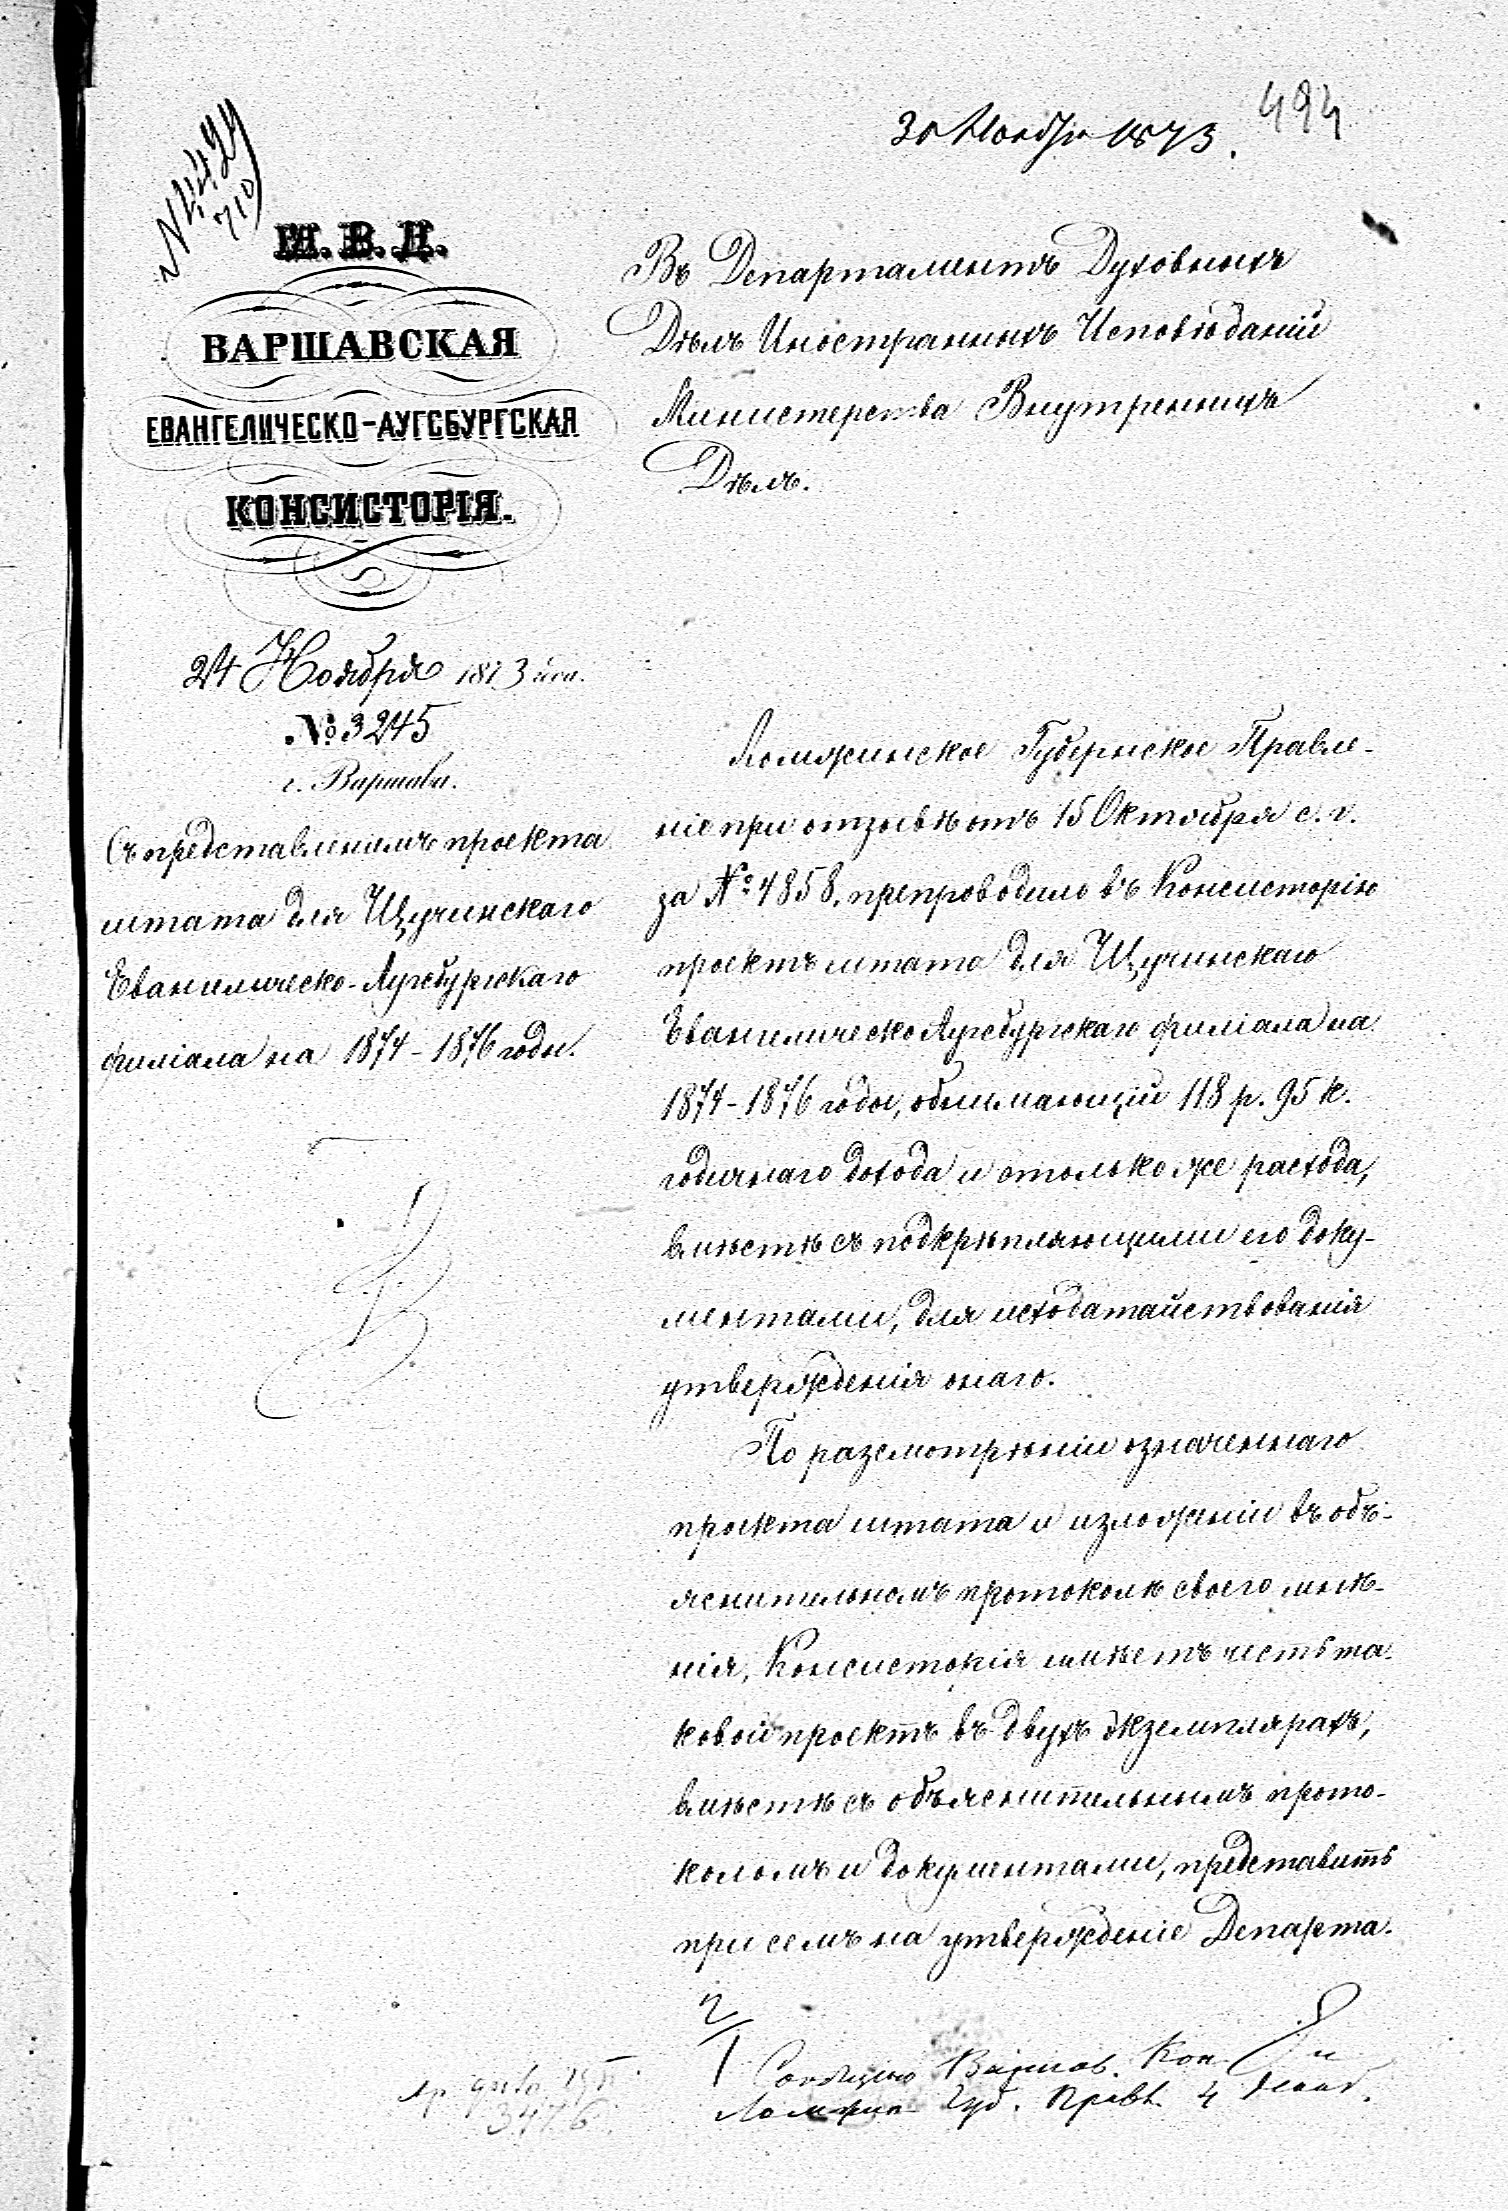 30 Ноября 1873.
494
М. В. Д.
ВАРШАВСКАЯ
ЕВАНГЕЛИЧЕСКО-АУГСБУРГСКАЯ
КОНСИСТОРІЯ.
24 Ноября 1873 дня.
№ 3245
г. Варшава.
Съ представленіемъ проекта
штата для Щучинскаго
Евангелическо-Аугсбургскаго
филіала на 1874-1876 годы.
Въ Департаментъ Духовныхъ
Дѣлъ Иностранныхъ Исповѣданій
Министерства Внутреннихъ
Дѣлъ.
Ломжинское Губернское Правле-
ніе при отзывѣ отъ 15 Октября с. г.
за № 4858, препроводило въ Консисторію
проектъ штата для Щучинскаго
Евангелическо Аугсбургскаго филіала на
1874-1876 годы, обнимающій 118 р. 95 к.
годичнаго дохода и столько же расхода,
вмѣстѣ съ подкрѣпляющими его доку-
ментами, для исходатайствованія
утвержденія онаго.
По разсмотрѣніи означеннаго
проекта штата и изложеніи въ объ-
яснительномъ протоколѣ своего мнѣ-
нія, Консисторія имѣетъ честь та-
ковой проектъ въ двухъ экземплярахъ,
вмѣстѣ съ объяснительнымъ прото-
коломъ и документами, представить
при семъ на утвержденіе Департа-
2/1
Сообщено Варшав. Кон. и
Ломжин. Губ. Правл. 4 Декаб.